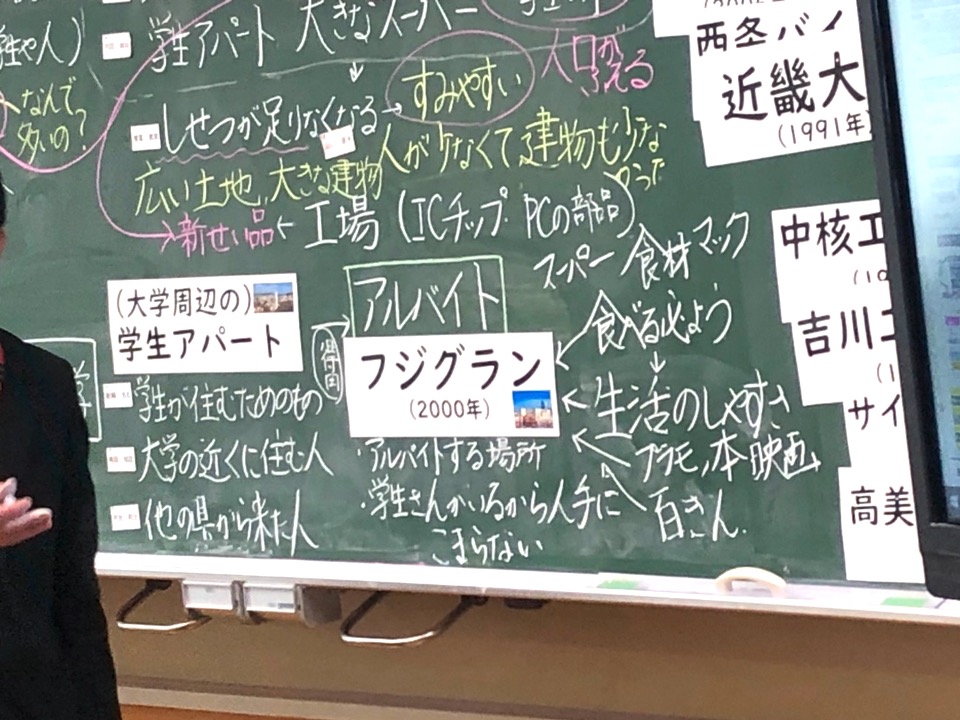 学生アパート 大きなスーパー
学生や人)
すみやすい
人口がふえる
なんで
多いの?
しせつが足りなくなる
広い土地、大きな建物
人が少なくて建物も少な
かった
新せい品 ← 工場 (ICチップ PCの部品)
スーパー 食材 マック
アルバイト
食べる
(大学周辺の)
学生アパート
フジグラン
(2000年)
生活のしやすさ
プラモ、本 映画
百きん
学生が住むためのもの
大学の近くに住む人
他の県から来た人
・アルバイトする場所
・学生さんがいるから人手に
こまらない
西条バイ
近畿大
(1991年)
中核工
吉川工
サイ
高美